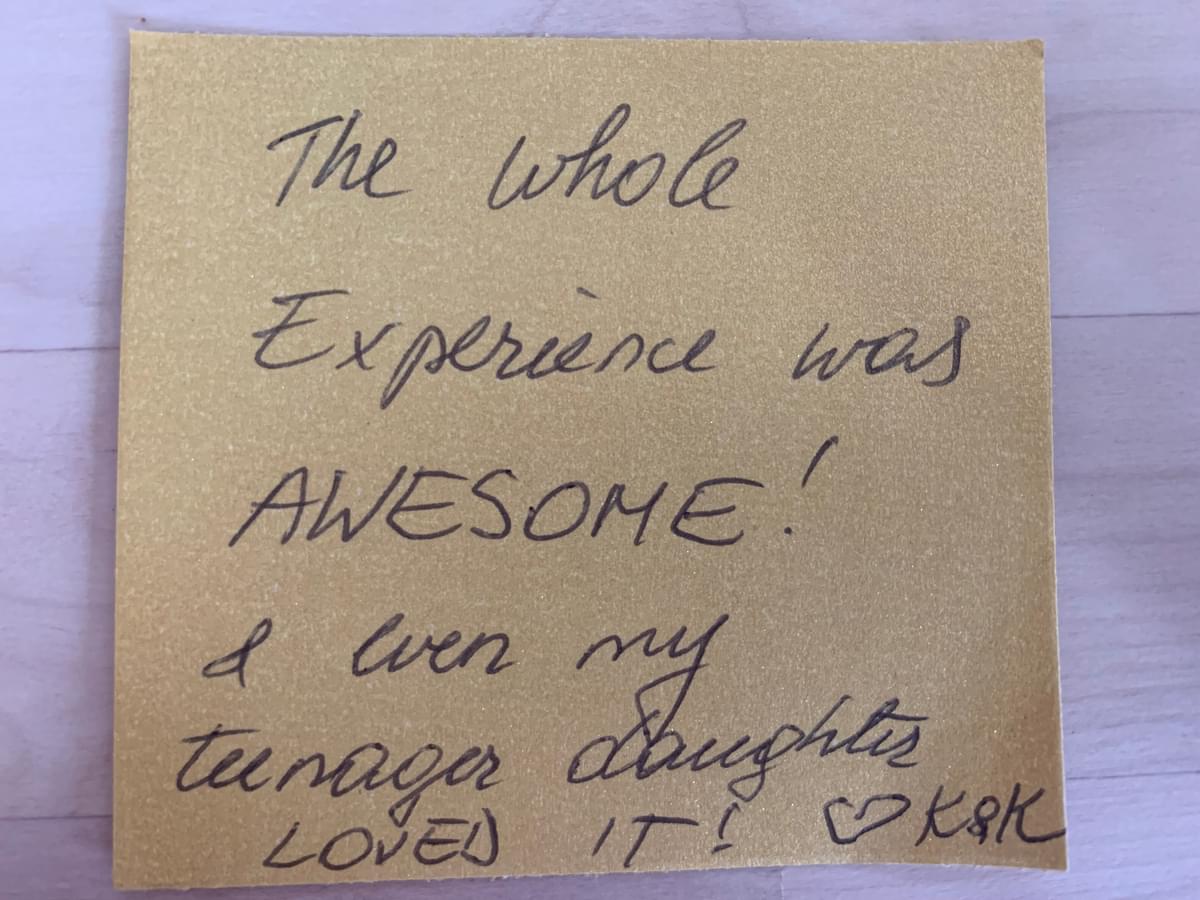 The whole
Experience was
AWESOME!
& even my
teenager daughter
LOVED IT! ♡ K&K